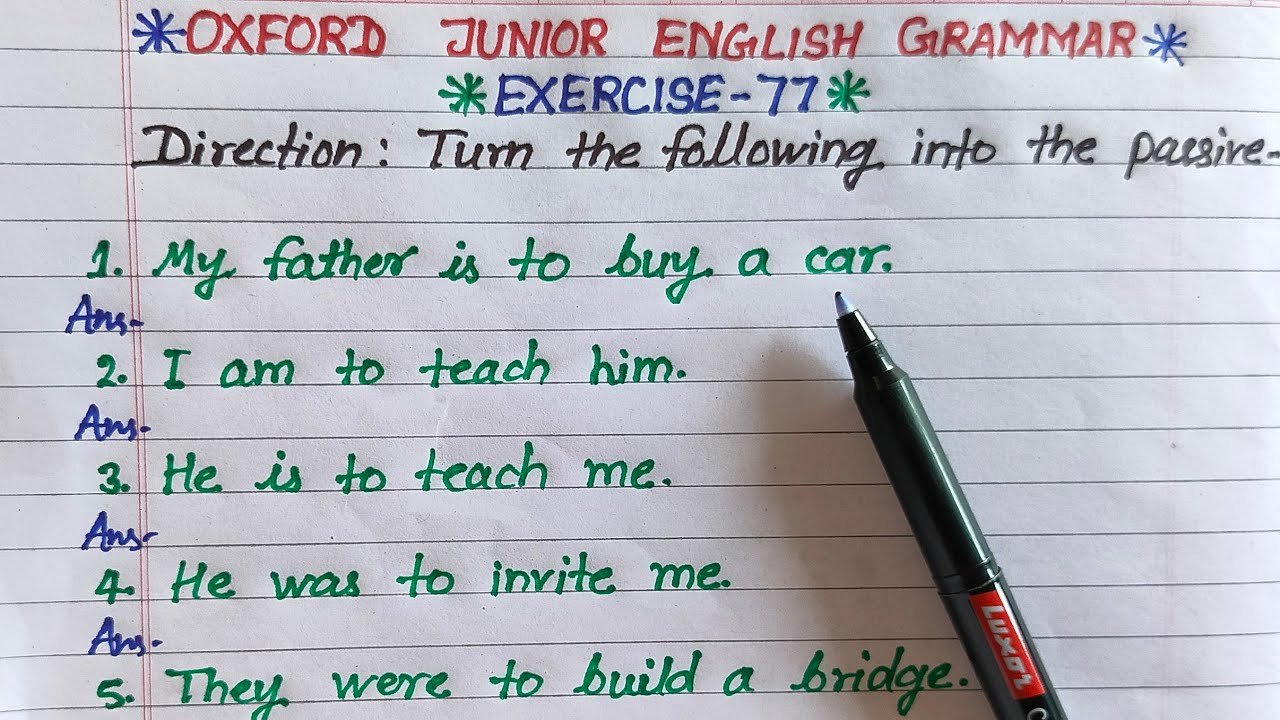 *OXFORD JUNIOR ENGLISH GRAMMAR*
*EXERCISE-77*
Direction: Turn the following into the passive-
1. My father is to buy a car.
Ans-
2. I am to teach him.
Ans-
3. He is to teach me.
Ans-
4. He was to invite me.
Ans-
5. They were to build a bridge.
LUXOR